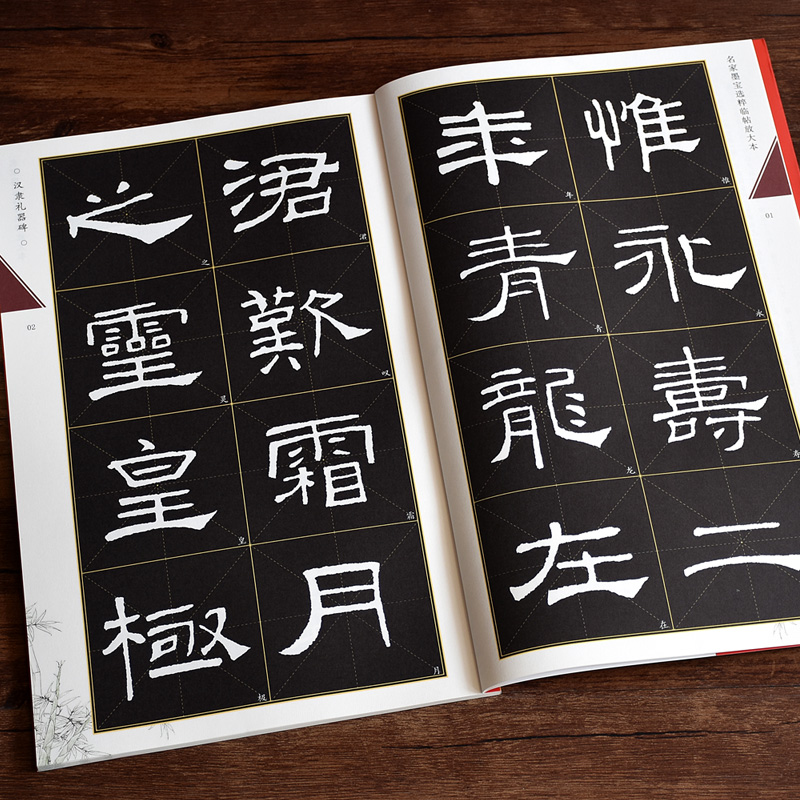 名家墨宝选粹临帖放大本
01
惟永壽二
惟永寿
年青龍在
年青龙在
涒歎霜月
涒叹霜月
之靈皇極
之灵皇极
○汉隶礼器碑○
02